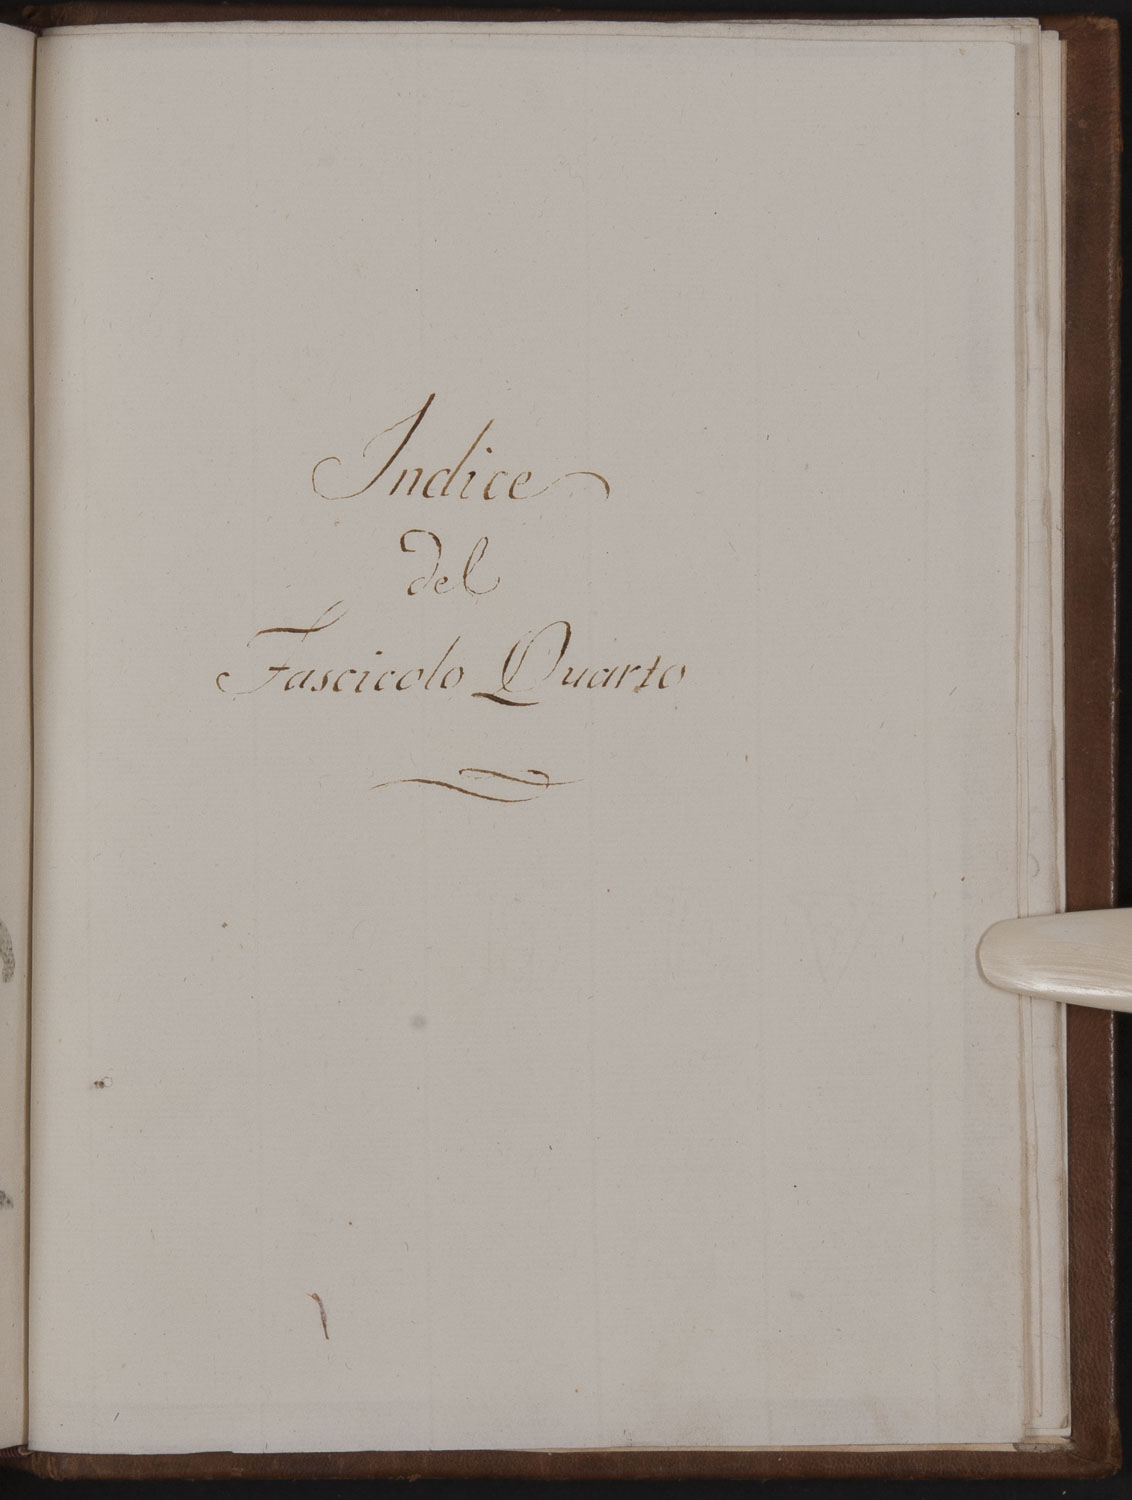 Indice
del
Fascicolo Quarto